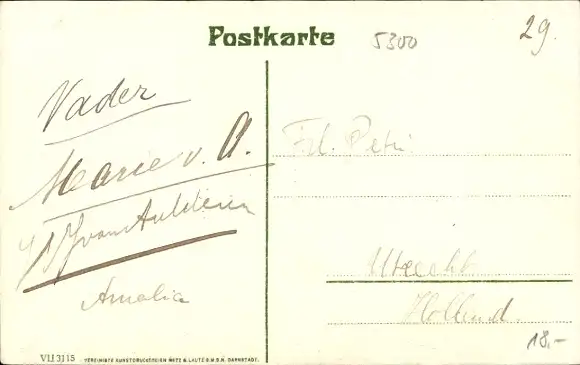 Postkarte
5300
29.
Vader
Marie v. A.
Amalia
Frl. Petri
Utrecht
Holland.
18.-
VII 3115
VEREINIGTE KUNSTDRUCKEREIEN METZ & LAUTZ G.M.B.H. DARMSTADT.